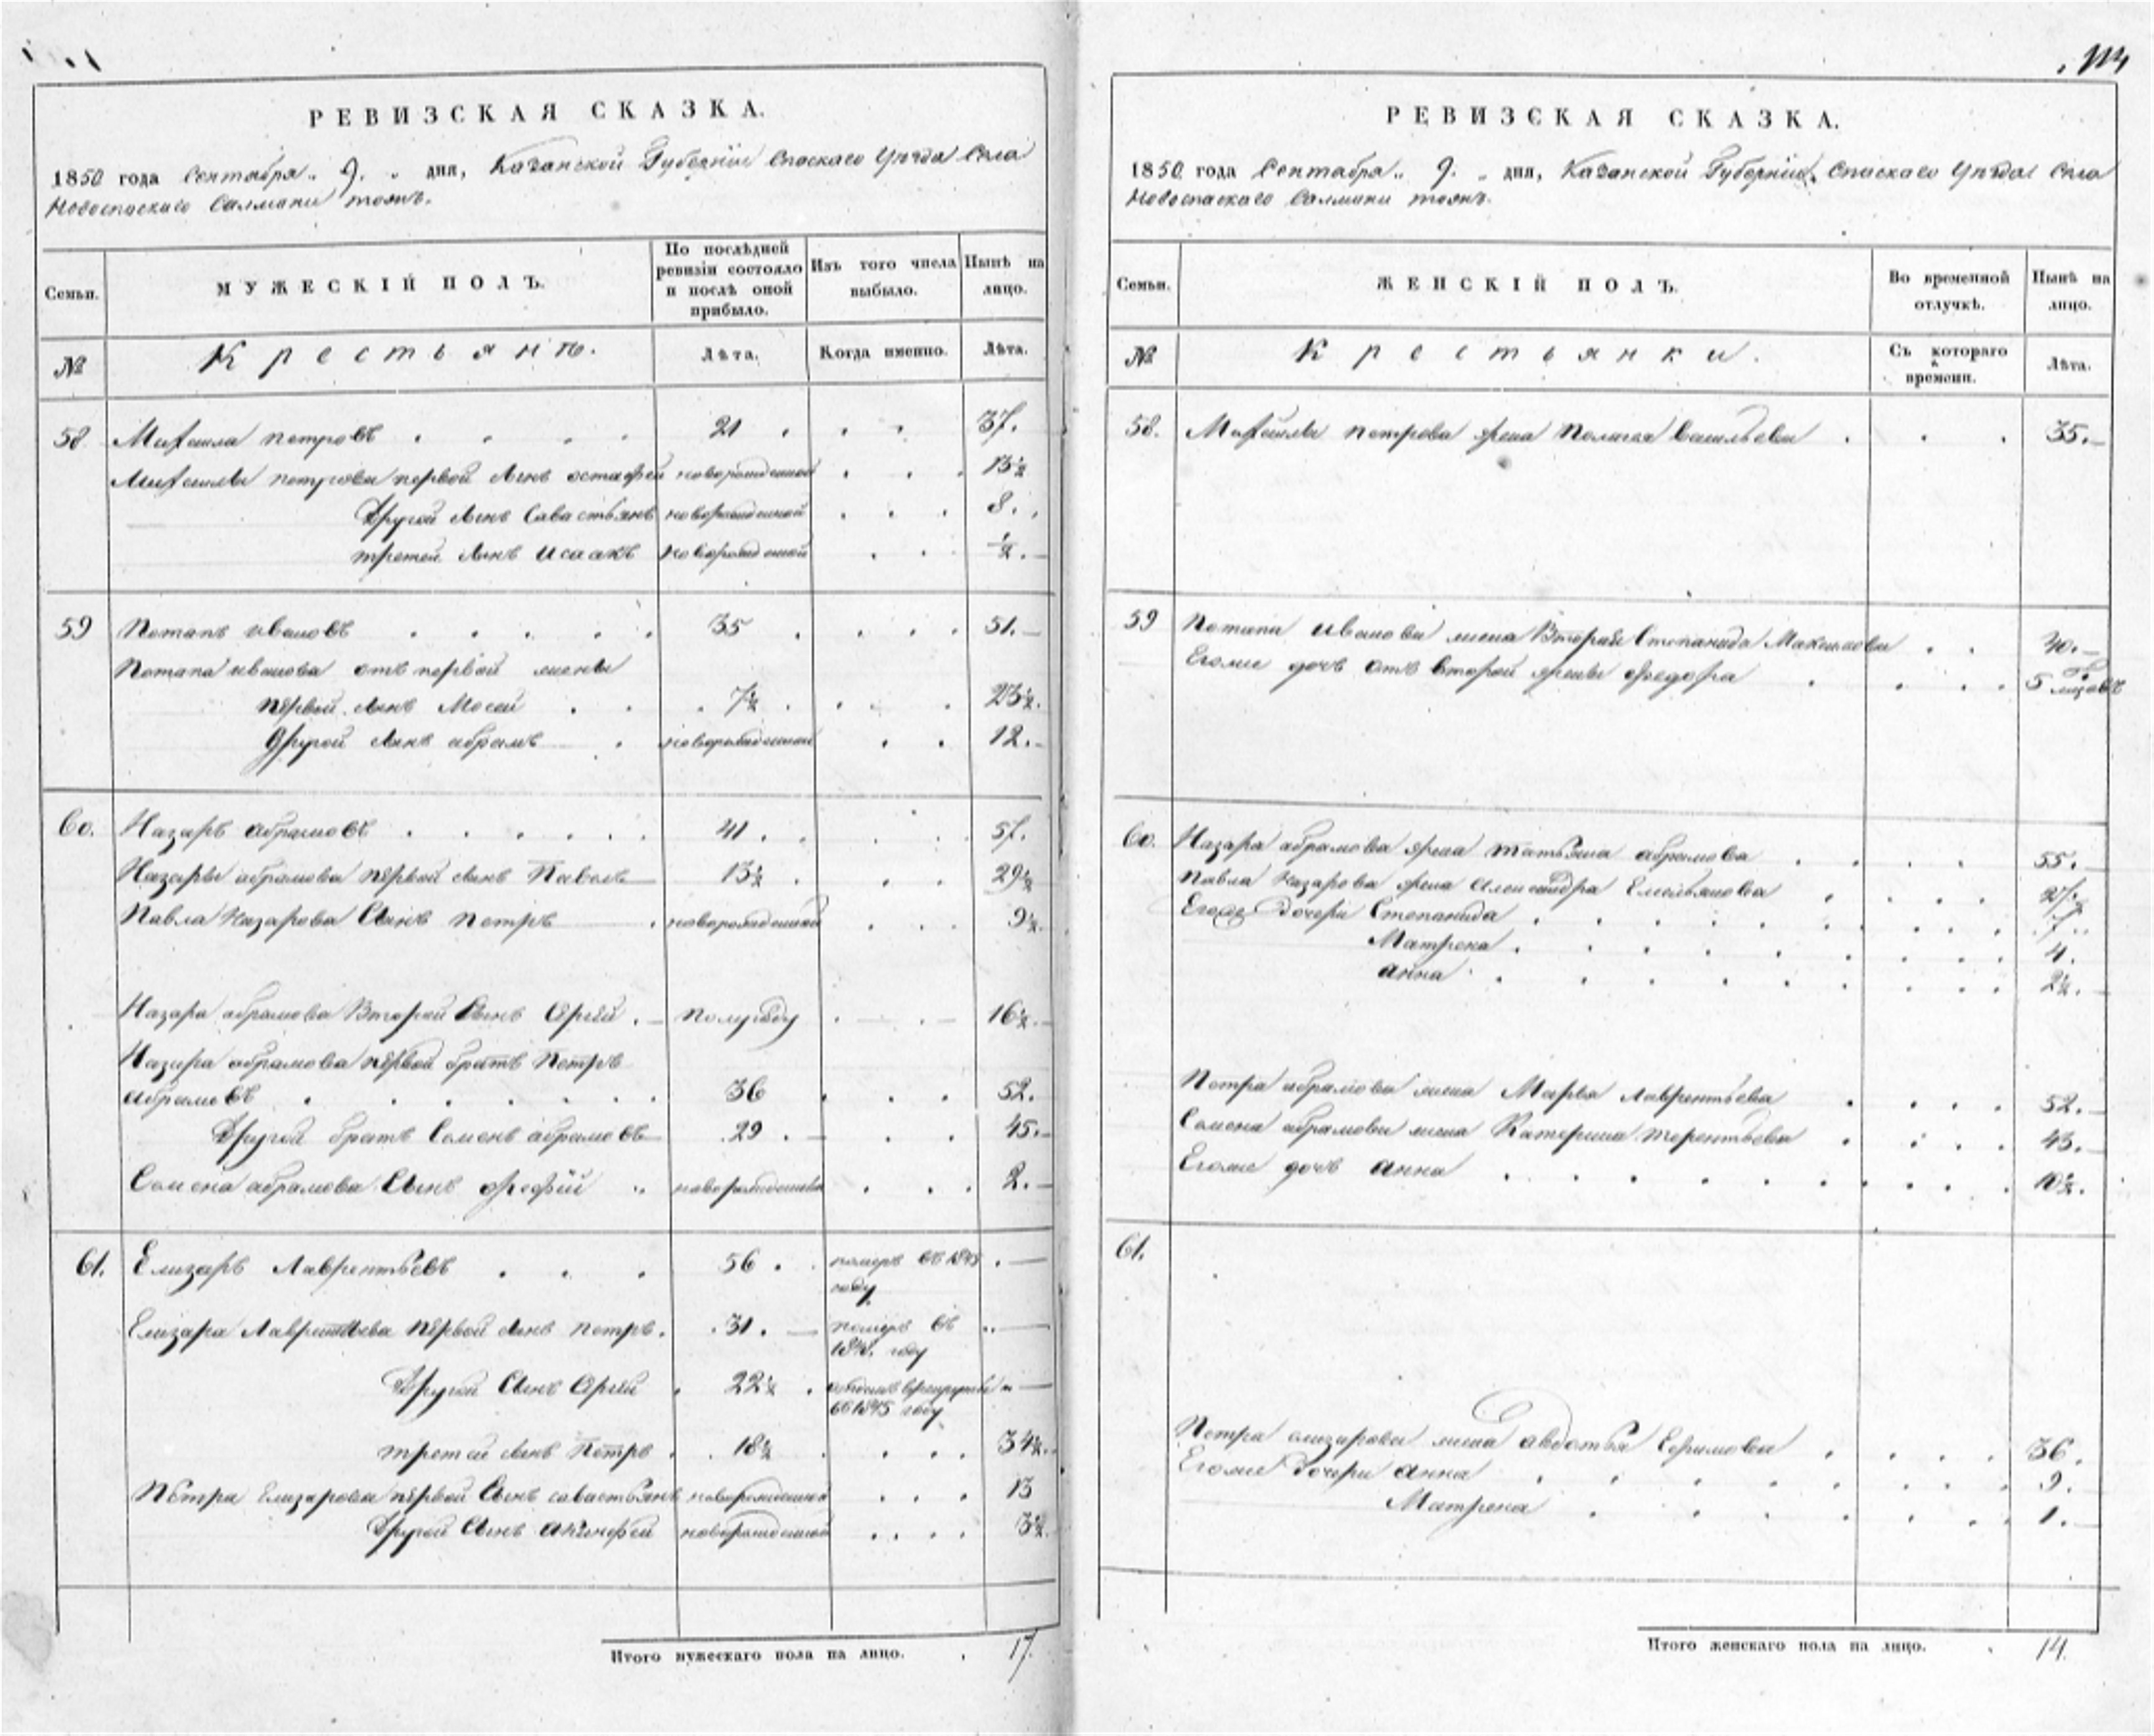 РЕВИЗСКАЯ СКАЗКА.
1850 года Сентября 9. дня, Казанской Губерніи Спаскаго Уѣзда Села
Новоспаскаго Салманы тожъ.
Семьи.
МУЖЕСКІЙ ПОЛЪ.
По послѣдней ревизіи состояло и послѣ оной прибыло.
Изъ того числа выбыло.
Нынѣ на лицо.
№
Крестьянъ.
Лѣта.
Когда именно.
Лѣта.
58. Михайла петровъ . . . . 21 . . . 37.
Михайлы петрова первой сынъ остафей новорожденной . . . 13½
Другой сынъ Савастьянъ новорожденной . . . 8.
третей сынъ Исаакъ новорожденной . . ½.
59 Потапъ ивановъ . . . . . 35 . . . . 51.
Потапа иванова отъ первой жены
первой сынъ Мосей . . . 7½ . . . 23½.
Другой сынъ абрамъ . новорожденной . . 12.
60. Назаръ абрамовъ . . . . . 41 . . . . 57.
Назара абрамова первой сынъ Павелъ 13½ . . . 29½
Павла Назарова Сынъ петръ . новорожденной . . . 9½.
Назара абрамова Второй Сынъ Сергей . полугоду . . 16½.
Назара абрамова первой братъ Петръ
абрамовъ . . . . . . 36 . . . 52.
Другой братъ Семенъ абрамовъ 29 . . . 45.
Семена абрамова Сынъ . новорожденной . . . 2.
61. Елизаръ Лаврентьевъ . . . 56 . померъ въ
году
Елизара Лаврентьева первой сынъ петръ . 31. померъ въ
году
Другой Сынъ Сергей . 22½ .
въ 1845 году
третей сынъ Петръ . 18½ . . . 34½.
Петра Елизарова первой Сынъ савастьянъ новорожденной . . . 13
Другой Сынъ акинфей новорожденной . . . . 3½.
Итого мужескаго пола на лицо. . 17.
РЕВИЗСКАЯ СКАЗКА.
1850 года Сентября 9. дня, Казанской Губерніи Спаскаго Уѣзда Села
Новоспаскаго Салманы тожъ.
Семьи.
ЖЕНСКІЙ ПОЛЪ.
Во временной отлучкѣ.
Нынѣ на лицо.
№
Крестьянки.
Съ котораго времени.
Лѣта.
58. Михайлы петрова жена Пелагея Васильева . . . 35.
59 Потапа Иванова жена Вторая Степанида Максимова . . 40.
Егоже дочь отъ второй жены федора . . . . 5
60. Назара абрамова жена татьяна абрамова . . . . 55.
Павла Назарова жена александра Емельянова . . . . 27.
Егоже Дочери Степанида . . . . . . . . 7.
Матрена . . . . . . . . 4.
анна . . . . . . . . 2½.
Петра абрамова жена Марья Лаврентьева . . . . 52.
Семена абрамова жена Катерина терентьева . . . . 43.
Егоже дочь анна . . . . . . . . 10½.
61.
Петра елизарова жена авдотья Ефимова . . . . 36.
Егоже Дочери анна . . . . . . . . 9.
Матрена . . . . . . . 1.
Итого женскаго пола на лицо. . 14.